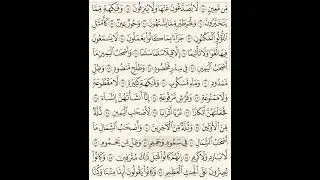 مِّن مَّعِينٍ لَّا يُصَدَّعُونَ عَنْهَا وَلَا يُنزِفُونَ وَفَٰكِهَةٍ مِّمَّا
يَتَخَيَّرُونَ وَلَحْمِ طَيْرٍ مِّمَّا يَشْتَهُونَ وَحُورٌ عِينٌ كَأَمْثَٰلِ
ٱللُّؤْلُؤِ ٱلْمَكْنُونِ جَزَآءًۢ بِمَا كَانُوا۟ يَعْمَلُونَ لَا يَسْمَعُونَ
فِيهَا لَغْوًا وَلَا تَأْثِيمًا إِلَّا قِيلًا سَلَٰمًا سَلَٰمًا وَأَصْحَٰبُ ٱلْيَمِينِ مَآ
أَصْحَٰبُ ٱلْيَمِينِ فِى سِدْرٍ مَّخْضُودٍ وَطَلْحٍ مَّنضُودٍ وَظِلٍّ
مَّمْدُودٍ وَمَآءٍ مَّسْكُوبٍ وَفَٰكِهَةٍ كَثِيرَةٍ لَّا مَقْطُوعَةٍ
وَلَا مَمْنُوعَةٍ وَفُرُشٍ مَّرْفُوعَةٍ إِنَّآ أَنشَأْنَٰهُنَّ إِنشَآءً
فَجَعَلْنَٰهُنَّ أَبْكَارًا عُرُبًا أَتْرَابًا لِّأَصْحَٰبِ ٱلْيَمِينِ ثُلَّةٌ
مِّنَ ٱلْأَوَّلِينَ وَثُلَّةٌ مِّنَ ٱلْءَاخِرِينَ وَأَصْحَٰبُ ٱلشِّمَالِ مَآ
أَصْحَٰبُ ٱلشِّمَالِ فِى سَمُومٍ وَحَمِيمٍ وَظِلٍّ مِّن يَحْمُومٍ
لَّا بَارِدٍ وَلَا كَرِيمٍ إِنَّهُمْ كَانُوا۟ قَبْلَ ذَٰلِكَ مُتْرَفِينَ وَكَانُوا۟
يُصِرُّونَ عَلَى ٱلْحِنثِ ٱلْعَظِيمِ وَكَانُوا۟ يَقُولُونَ أَئِذَا مِتْنَا وَكُنَّا